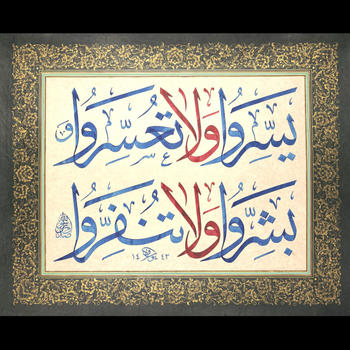 يسروا ولا تعسروا
بشروا ولا تنفروا
١٤٤٣